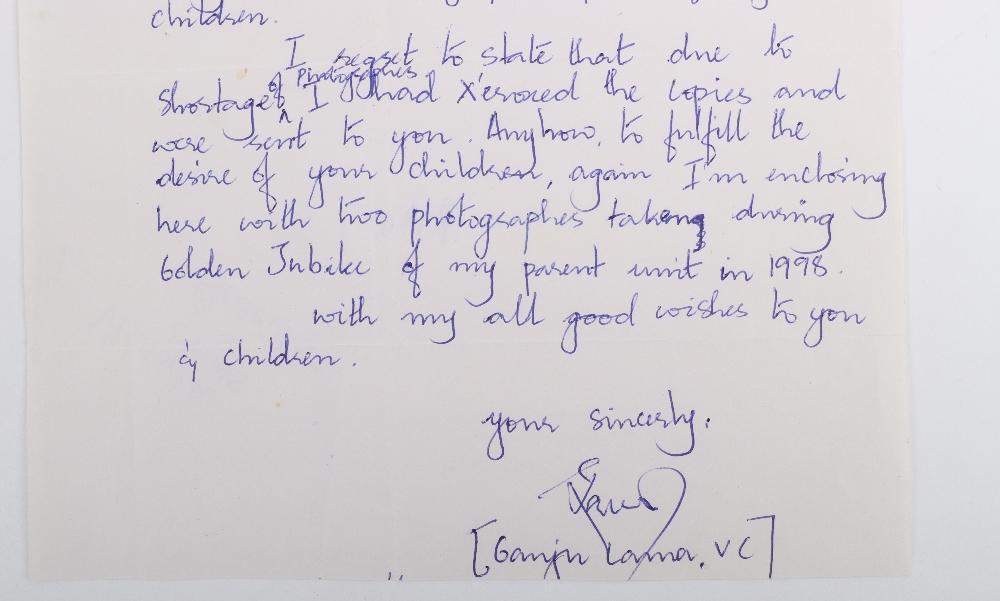 children.
I regret to state that due to
shortage of photographes I had X'eroxed the copies and
were sent to you. Anyhow, to fulfill the
desire of your children, again I'm enclosing
here with two photographes taken during
Golden Jubilee of my parent unit in 1998.
with my all good wishes to you
& children.
your sincerly.
[Ganju Lama, VC]